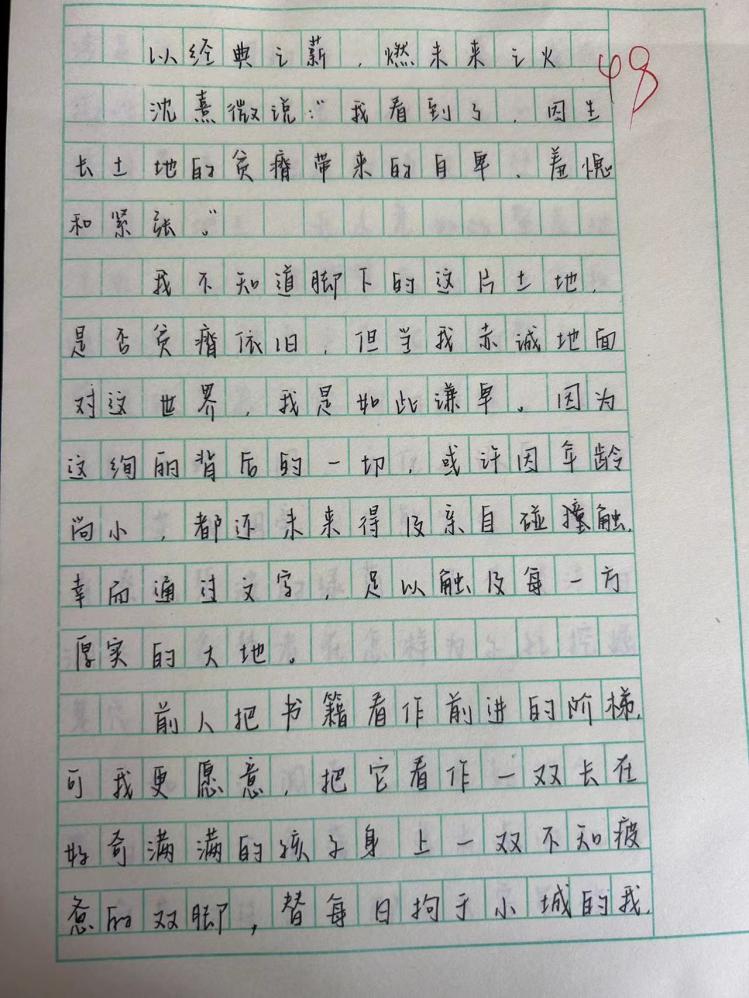 以经典之薪，燃未来之火
48
沈熹微说："我看到了，因生
长土地的贫瘠带来的自卑、羞愧
和紧张。"
我不知道脚下的这片土地，
是否贫瘠依旧，但当我赤诚地面
对这世界，我是如此谦卑。因为
这绚丽背后的一切，或许因年龄
尚小，都还未来得及亲自碰撞触，
幸而通过文字，足以触及每一方
厚实的大地。
前人把书籍看作前进的阶梯，
可我更愿意，把它看作一双长在
好奇满满的孩子身上一双不知疲
惫的双脚，替每日拘于小城的我，